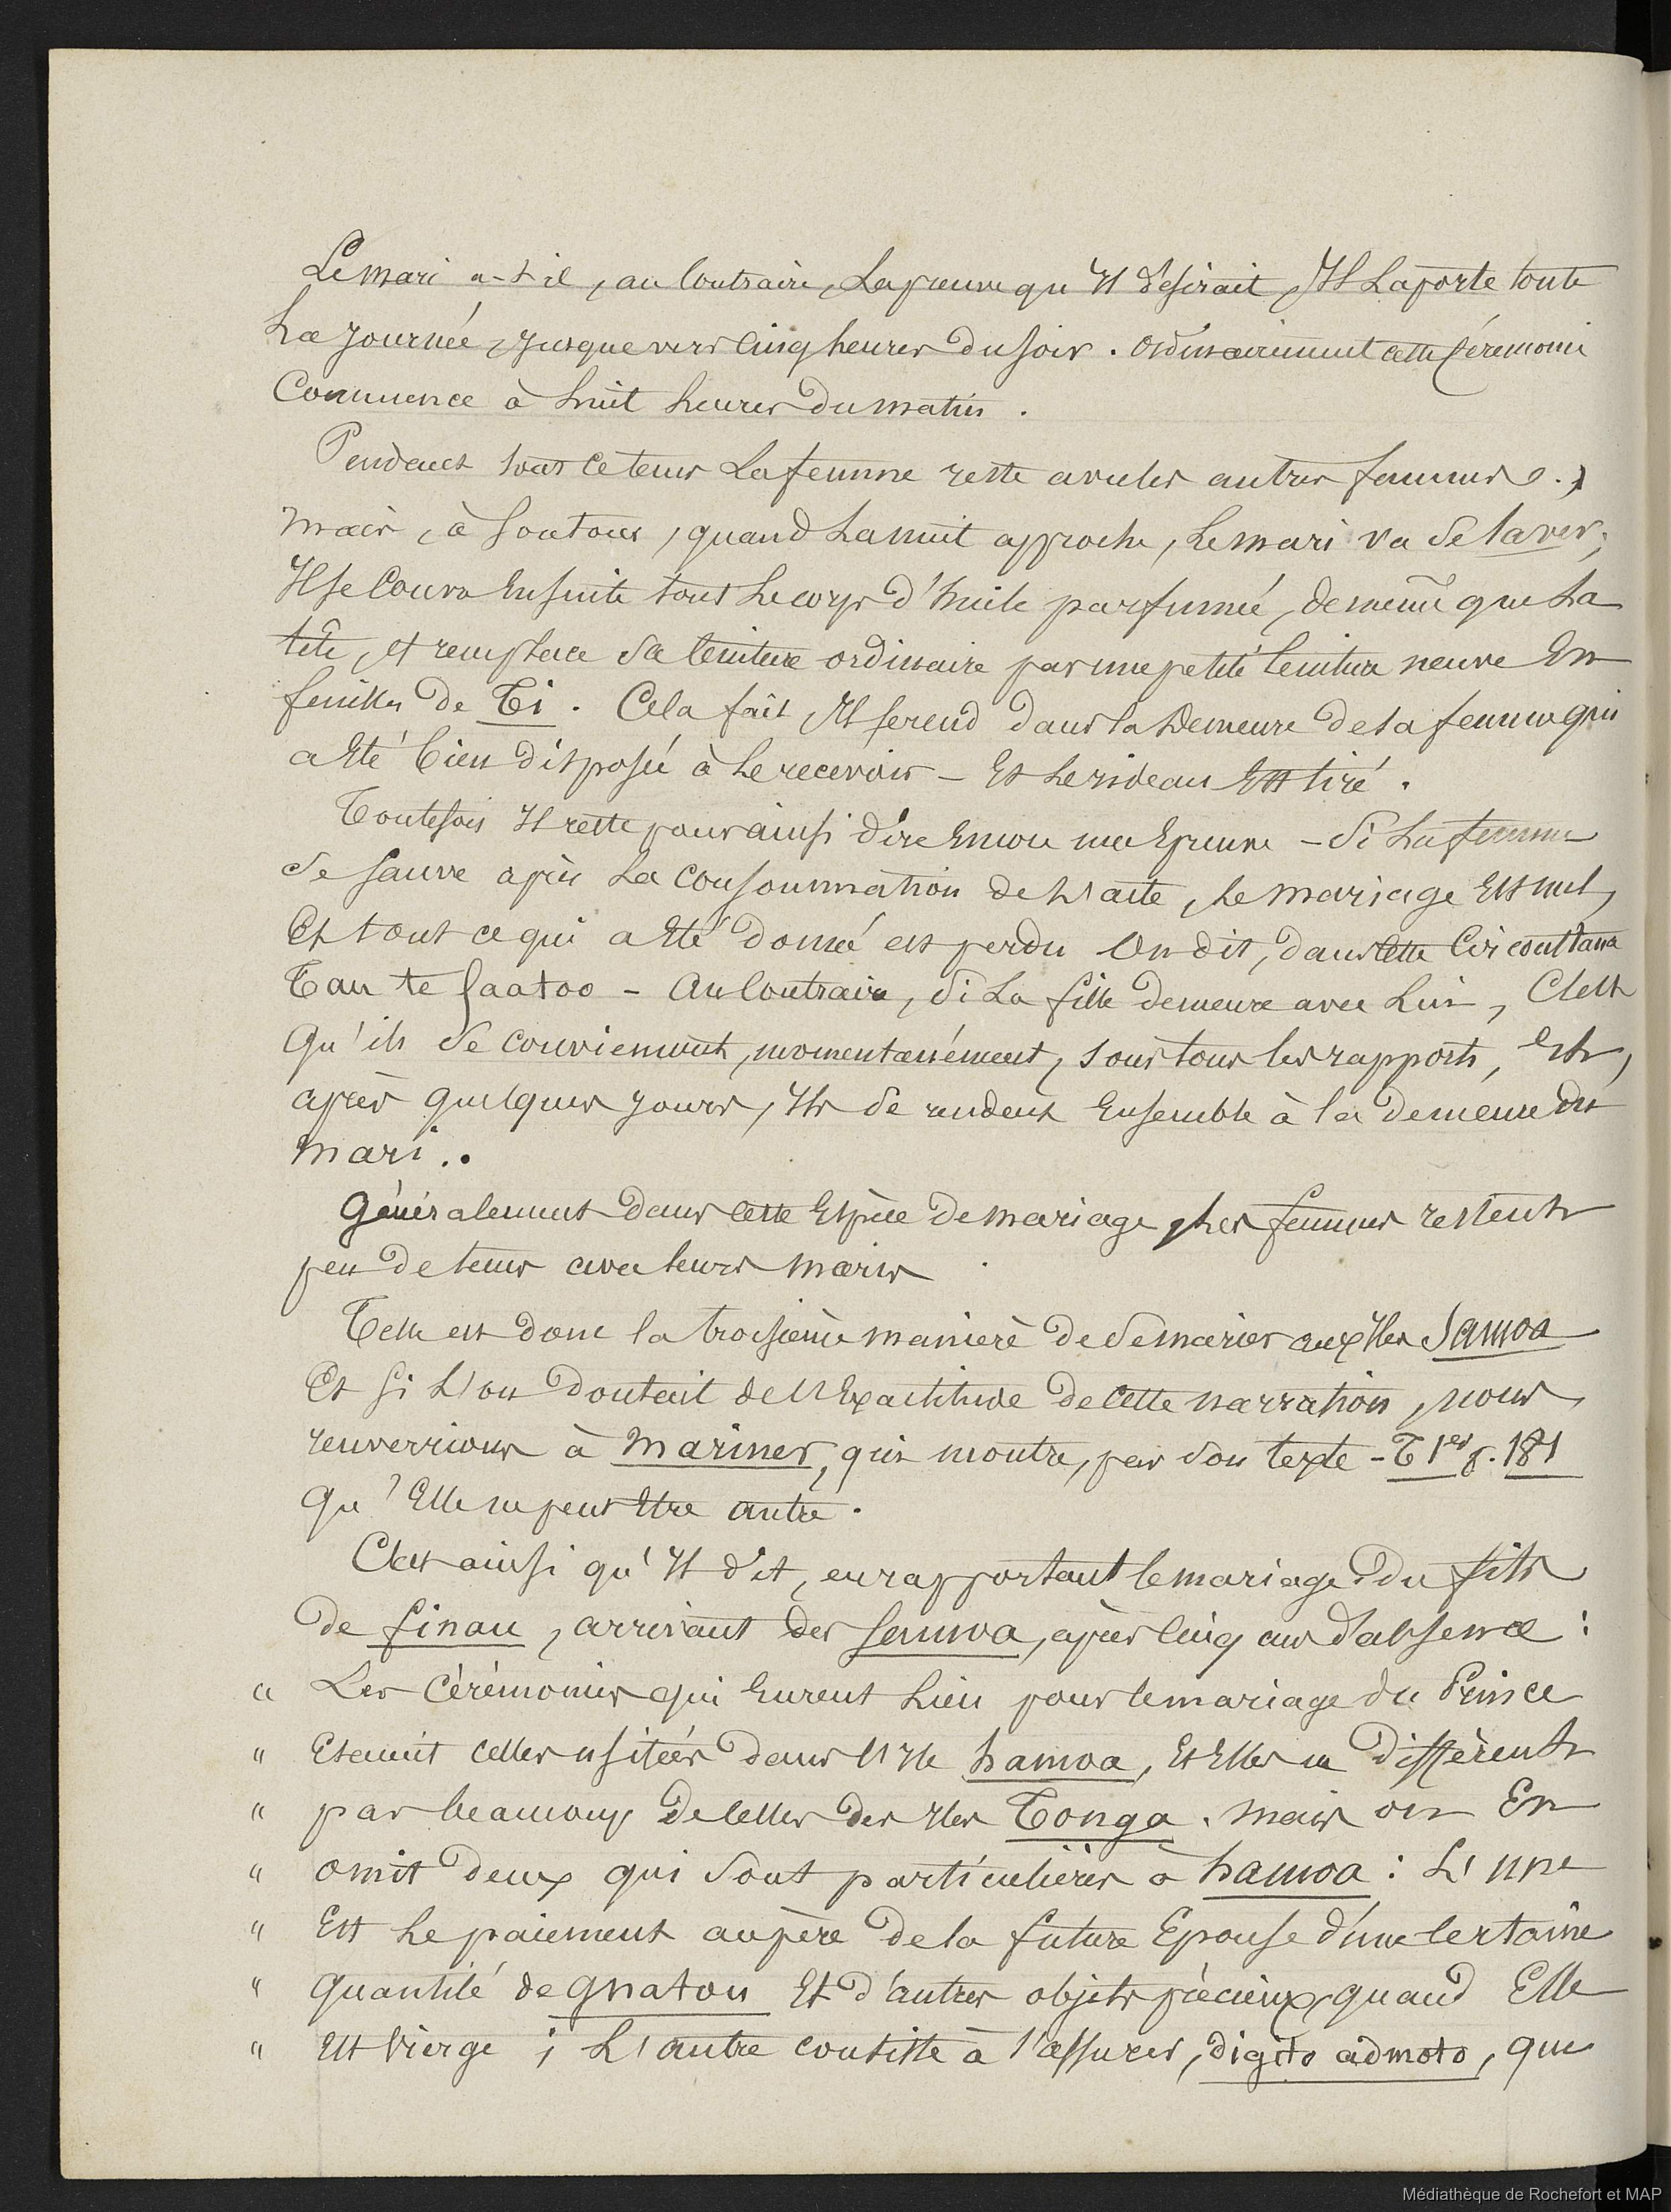 Le mari a-t-il, au Contraire, La preuve qu'Il désirait, Il La porte toute
La Journée, Jusque vers Cinq heures du soir. Ordinairement cette Cérémonie
Commence à huit heures du matin.
Pendant tout ce tems La femme reste avec les autres femmes.
Mais, à son tour, quand La nuit approche, Le mari va se laver;
Il se Couvre Ensuite tout Le corps d'huile parfumée, de même que La
tête, et remplace sa Ceinture ordinaire par une petite Ceinture neuve En
feuilles de Ti. Cela fait, Il se rend dans la Demeure de sa femme qui
a Eté bien disposée à Le recevoir – Et Le rideau Est tiré.
Toutefois Il reste pour ainsi dire Encore une Epreuve – Si La femme
se sauve après La Consommation de L'acte, Le mariage Est nul,
Et tout ce qui a Eté donné est perdu. On dit, dans Cette Circonstance
Tau te faatoo – Au Contraire, si La fille demeure avec Lui, C'est
Qu'ils se conviennent, momentanément, sous tous les rapports, Et,
après quelques Jours, Ils se rendent Ensemble à la demeure du
Mari..
Généralement dans Cette Espèce de mariage, Les femmes restent
peu de tems avec leurs maris.
Telle est donc la troisième manière de se marier aux Iles Samoa
Et si L'on doutait de L'Exactitude de Cette narration, nous
renverrions à Mariner, qui montre, par son texte – T 1er p. 181
Qu'Elle ne peut Etre autre.
C'est ainsi qu'Il dit, en rapportant le mariage du fils
de finau, arrivant des Samoa, après Cinq ans d'absence:
" Les Cérémonies qui Eurent Lieu pour le mariage du Prince
" Etaient Celles usitées dans L'Ile hamoa, Et Elles ne diffèrent
" pas beaucoup de Celles des Iles Tonga. Mais on En
" omit deux qui sont particulières à hamoa: L'une
" Est Le paiement au père de la future Epouse d'une Certaine
" Quantité de gnatou Et d'autres objets précieux, quand Elle
" Est Vierge; L'autre consiste à s'assurer, digito admoto, que
Médiathèque de Rochefort et MAP